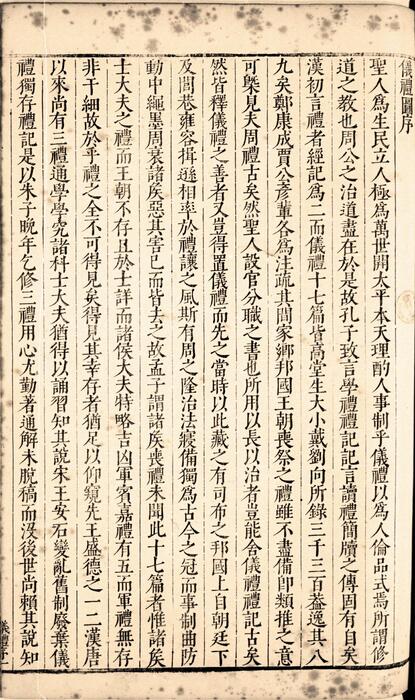 儀禮圖序
聖人爲生民立人極爲萬世開太平本天理酌人事制乎儀禮以爲人倫品式焉所謂修
道之教也周公之治道盡在於是故孔子致言學禮禮記記言讀禮簡牘之傳固有自矣
漢初言禮者經記爲二而儀禮十七篇皆高堂生大小戴劉向所錄三千三百葢逸其八
九矣鄭康成賈公彥輩各爲注疏其間家鄉邦國王朝喪祭之禮雖不盡備卽類推之意
可槩見夫周禮古矣然聖人設官分職之書也所用以長以治者豈能舍儀禮禮記古矣
然皆釋儀禮之善者又豈得置儀禮而先之當時以此藏之有司布之邦國上自朝廷下
及閭巷雍容揖遜相率於禮讓之風斯有周之隆治法寖備獨爲古今之冠而事制曲防
動中繩墨周衰諸矦惡其害已而皆去之故孟子謂諸矦喪禮未聞此十七篇者惟諸矦
士大夫之禮而王朝不存且於士詳而諸侯大夫特略吉凶軍賓嘉禮有五而軍禮無存
非干細故於乎禮之全不可得見矣得見其幸存者猶足以仰窺先王盛德之一二漢唐
以來尚有三禮通學學究諸科士大夫猶得以誦習知其說宋王安石變亂舊制廢棄儀
禮獨存禮記是以朱子晚年乞修三禮用心尤勤著通解未脫稿而沒後世尚賴其說知
儀禮序